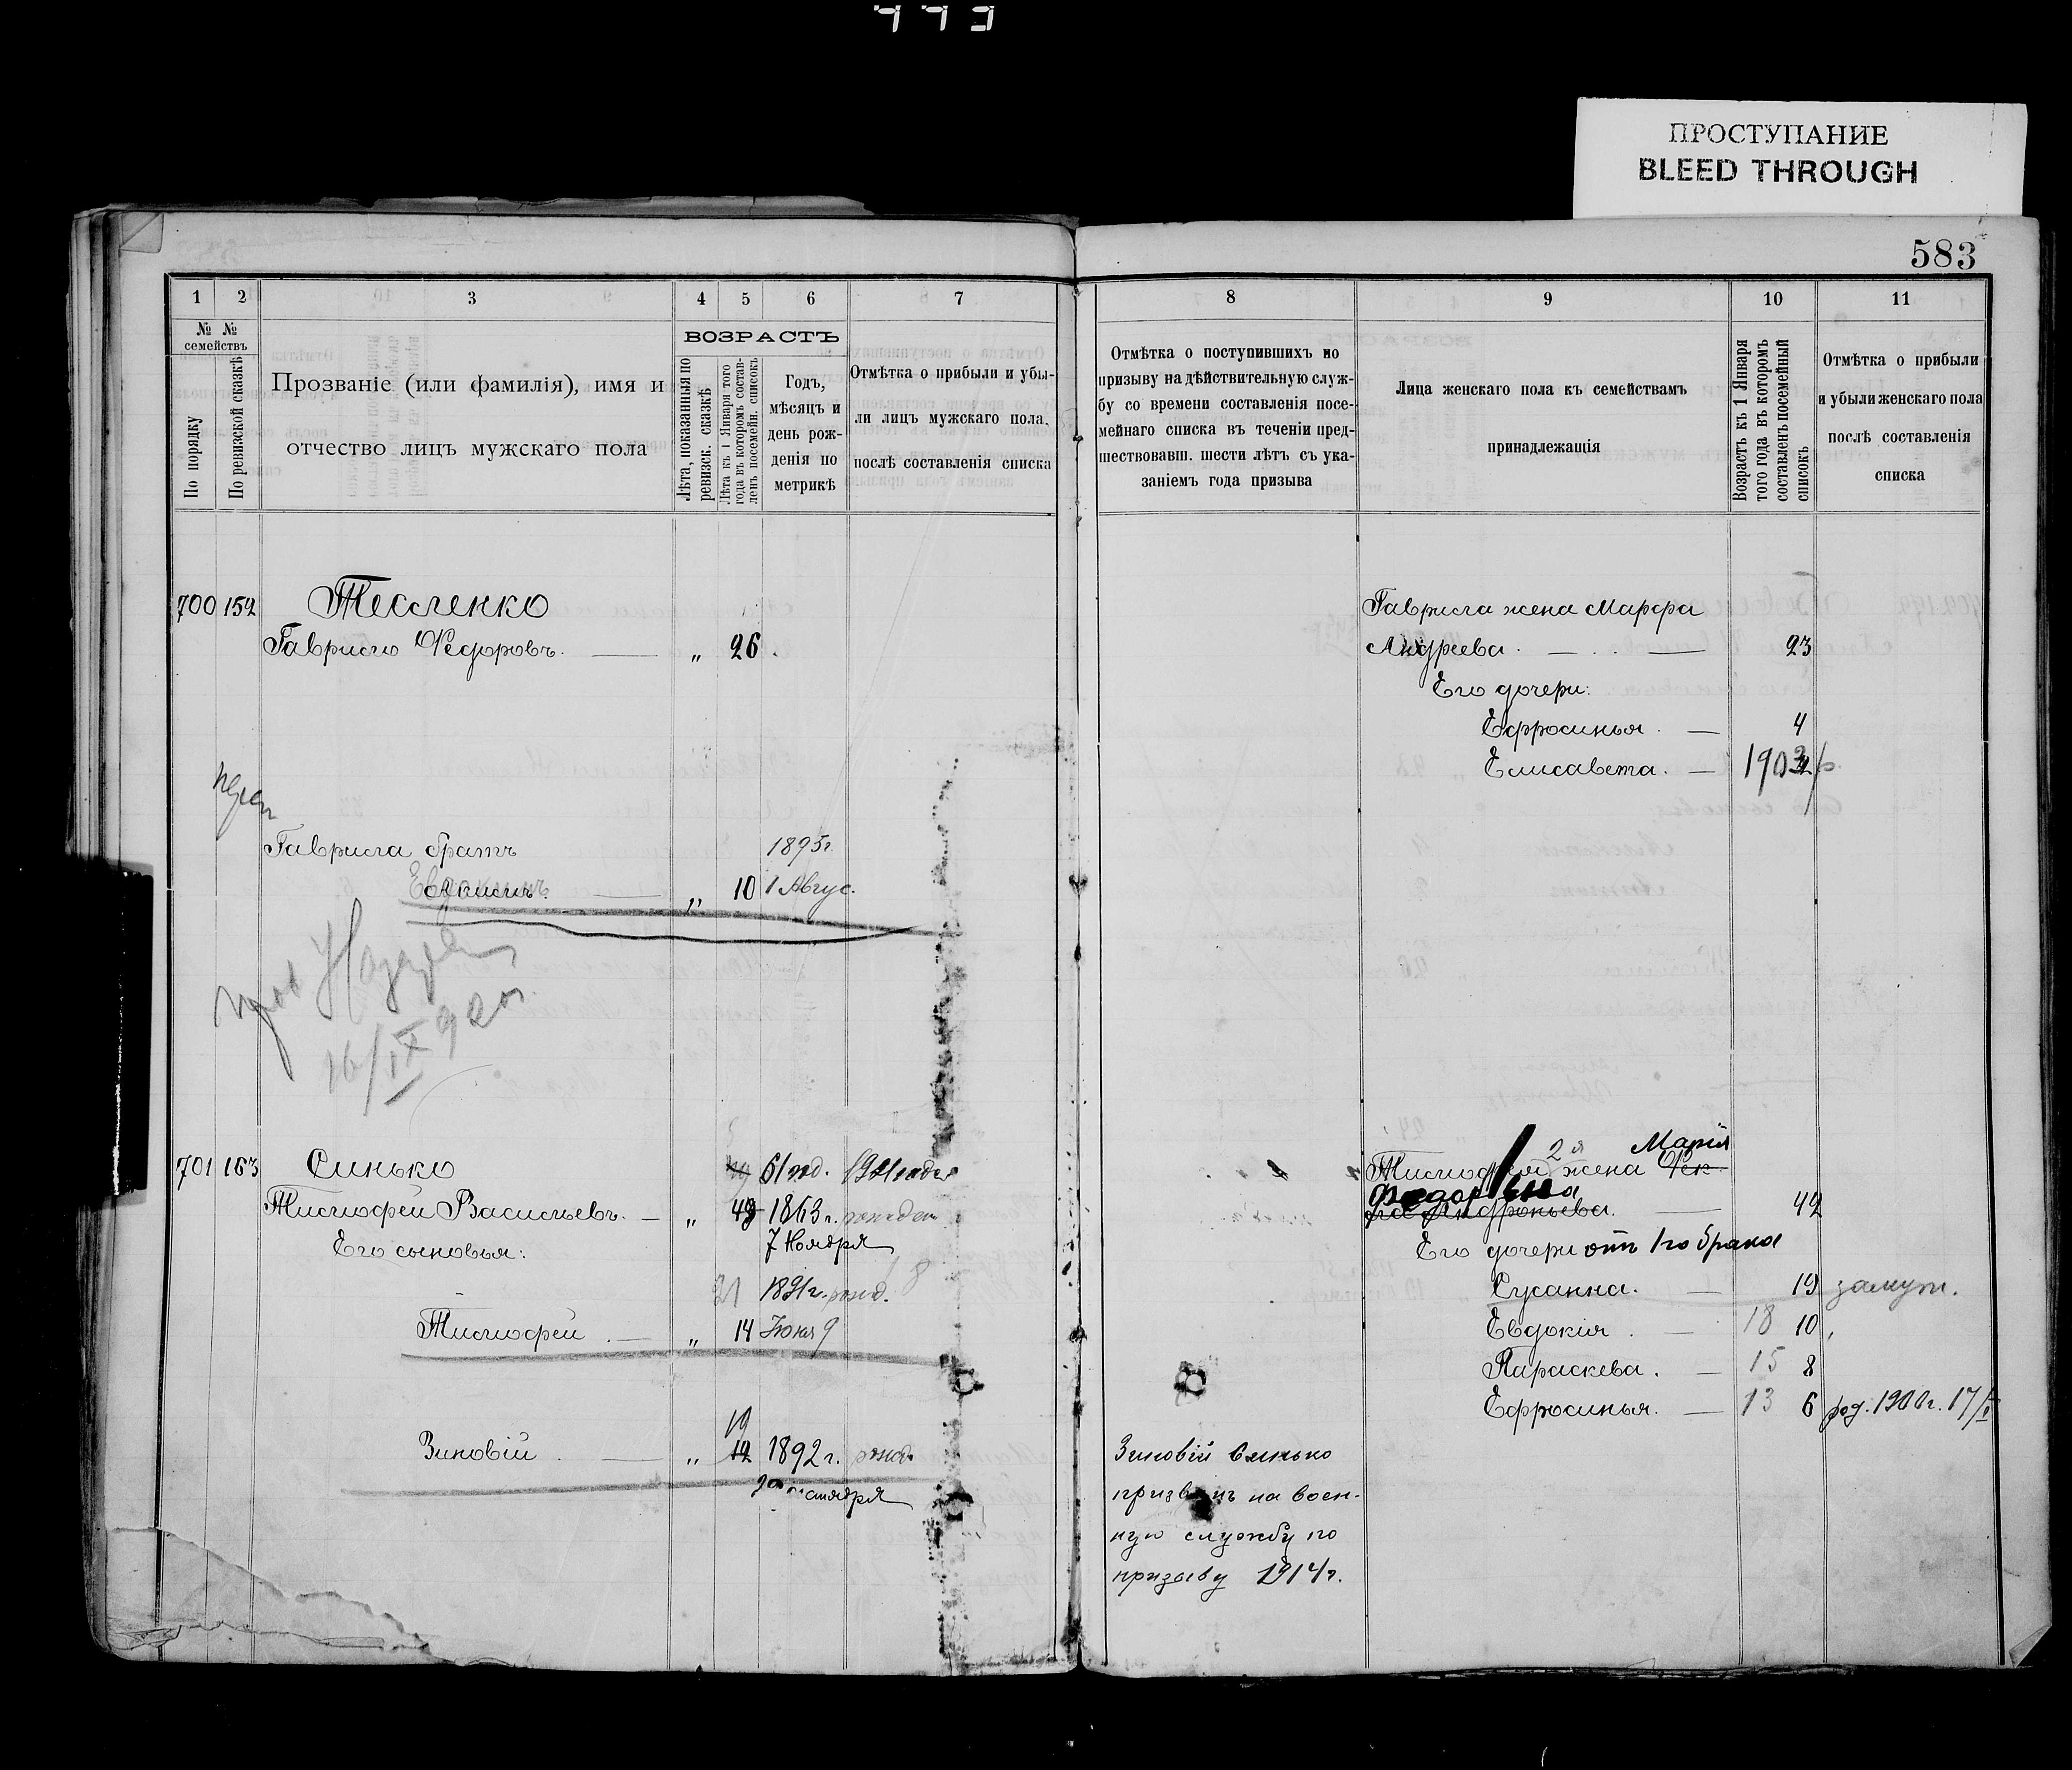 ПРОСТУПАНИЕ
BLEED THROUGH
583
1 2 3 4 5 6 7
№ № семействъ
По порядку
По ревизской сказкѣ
Прозваніе (или фамилія), имя и
отчество лицъ мужскаго пола
ВОЗРАСТЪ
Лѣта, показанныя по
ревизск. сказкѣ
Лѣта къ 1 Января того
года въ которомъ состав-
ленъ посемейн. списокъ
Годъ,
мѣсяцъ и
день рож-
денія по
метрикѣ
Отмѣтка о прибыли и убы-
ли лицъ мужскаго пола,
послѣ составленія списка
8 9 10 11
Отмѣтка о поступившихъ по
призыву на дѣйствительную служ-
бу со времени составленія посе-
мейнаго списка въ теченіи пред-
шествовавш. шести лѣтъ съ ука-
заніемъ года призыва
Лица женскаго пола къ семействамъ
принадлежащія
Возрастъ къ 1 Января
того года въ которомъ
составленъ посемейный
списокъ
Отмѣтка о прибыли
и убыли женскаго пола
послѣ составленія
списка
700 152 Тесленко
Гаврило Федоровъ. — „ 26.
Гаврила братъ 1895г.
„ 10 1 Авгус.
16/IX 920г.
701 163 Синько 61 год.
Тимофей Васильевъ. — „ 1863г. рожден
7 Ноября
Его сыновья:
21 1891г. рожд.
Тимофей. — „ 14 Іюня 9
19
Зиновій. — „ 12 1892г. рожд.
Гаврила жена Марфа
Андреева. — 23
Его дочери:
Ефросинья. — 4
Елисавета. —
2я Марія
Тимофея жена Фек-
Федоровна
ла Андроньева. — 42
Его дочери отъ 1го брака
Сусанна. — 19 замуж.
Евдокія. — 18 10
Параскева. — 15 8
Ефросинья. — 13 6 род. 1900г.
Зиновій Синько
призванъ на воен-
ную службу по
призыву 1914г.